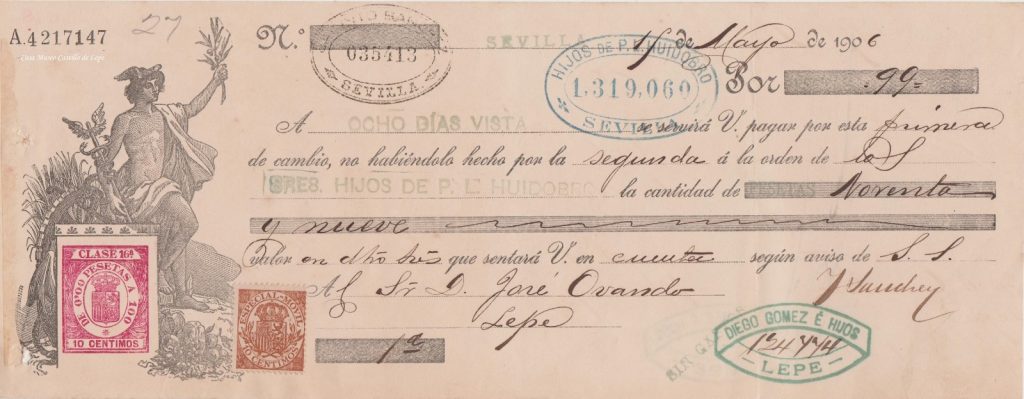 A.4217147
27
Casa Museo Castillo de Lepe
N.º
035413
SEVILLA.
SEVILLA 15 de Mayo de 1906
HIJOS DE P. L. HUIDOBRO
1.319,060
SEVILLA
Por 99=
A OCHO DÍAS VISTA se servirá V. pagar por esta primera
de cambio, no habiéndolo hecho por la segunda á la orden de los S
SRES. HIJOS DE P. L. HUIDOBRO la cantidad de PESETAS Noventa
y nueve
valor en dho tres que sentará V. en cuenta según aviso de S. S.
Al Sr. D. José Ovando
JSanchez
Lepe
1ª
CLASE 16ª
DE 0'00 PESETAS A 100
10 CENTIMOS
ESPECIAL MOVIL
10 CENTIMOS
SIN GA
DIEGO GOMEZ É HIJOS
124774
LEPE